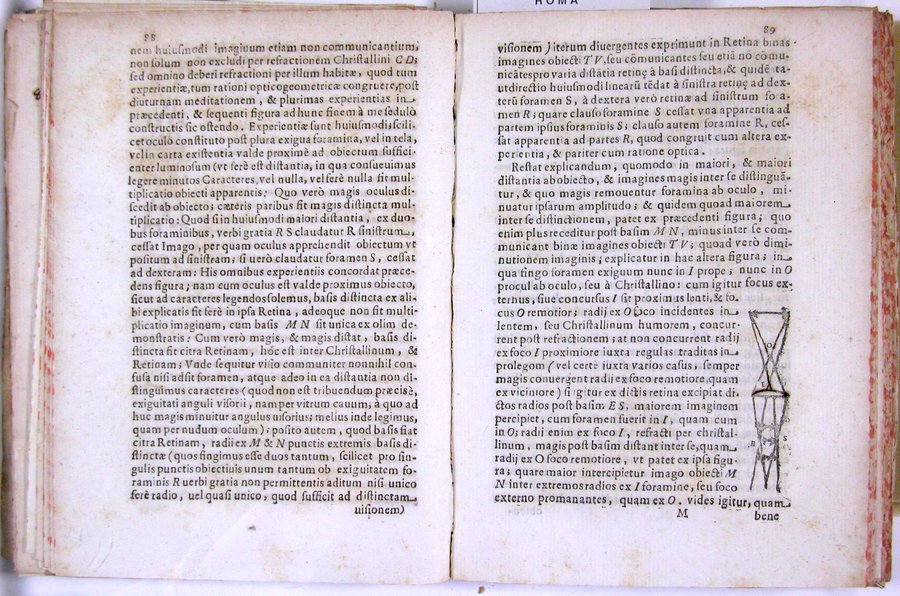 ROMA
88
nem huiusmodi imaginum etiam non communicantium,
non solum non excludi per refractionem Christallini C D;
sed omnino deberi refractioni per illum habitæ, quod tum
experientiæ, tum rationi opticogeometricæ congruere, post
diuturnam meditationem, & plurimas experientias in
præcedenti, & sequenti figura ad hunc finem à me sedulò
constructis sic ostendo. Experientiæ sunt huiusmodi; scili-
cet oculo constituto post plura exigua foramina, vel in tela,
vel in carta existentia valde proximè ad obiectum suffici
enter luminosum (vt ferè est distantia, in qua consueuimus
legere minutos Caracteres, vel nulla, vel ferè nulla fit mul
tiplicatio obiecti apparentis: Quo verò magis oculus di-
scedit ab obiecto; cæteris paribus fit magis distincta mul
tiplicatio: Quod si in huiusmodi maiori distantia, ex duo
bus foraminibus, verbi gratia R S claudatur R sinistrum,
cessat Imago, per quam oculus apprehendit obiectum vt
positum ad sinistram; si verò claudatur foramen S, cessat
ad dexteram: His omnibus experientiis concordat præce-
dens figura; nam cum oculus est valde proximus obiecto,
sicut ad caracteres legendos solemus, basis distincta ex ali-
bi explicatis fit ferè in ipsa Retina, adeoque non fit multi-
plicatio imaginum, cum basis M N sit vnica ex olim de-
monstratis: Cum verò magis, & magis distat, basis di-
stincta fit citra Retinam, hoc est inter Christallinum, &
Retinam; Vnde sequitur visio communiter nonnihil con-
fusa nisi adsit foramen, atque adeo in ea distantia non di-
stinguimus caracteres (quod non est tribuendum præcisè,
exiguitati anguli visorii, nam per vitrum cauum, à quo ad
huc magis minuitur angulus uisorius; melius inde legimus,
quam per nudum oculum): posito autem, quod basis fiat
citra Retinam, radii ex M & N punctis extremis basis di-
stinctæ (quos fingimus esse duos tantum, scilicet pro sin
gulis punctis obiectiuis unum tantum ob exiguitatem fo-
raminis R uerbi gratia non permittentis aditum nisi unico
ferè radio, uel quasi unico, quod sufficit ad distinctam
uisionem)
89
visionem) iterum diuergentes exprimunt in Retina binas
imagines obiecti T V, seu cõmunicantes seu etiã nõ cõmu-
nicãtes pro varia distãtia retinę à basi distincta, & quidẽ ta-
ut directio huiusmodi linearũ tẽdat à sinistra retinę ad dex-
terũ foramen S, à dextera verò retinæ ad sinistrum fora-
men R; quare clauso foramine S cessat vna apparentia ad
partem ipsius foraminis S; clauso autem foramine R, ces-
sat apparentia ad partes R, quod congruit cum altera ex-
perientia, & pariter cum ratione optica.
Restat explicandum, quomodo in maiori, & maiori
distantia ab obiecto, & imagines magis inter se distinguã-
tur, & quo magis remouentur foramina ab oculo, mi-
nuatur ipsarum amplitudo; & quidem quoad maiorem
inter se distinctionem, patet ex præcedenti figura; quo
enim plus receditur post basim M N, minus inter se com
municant binæ imagines obiecti T V; quoad verò dimi-
nutionem imaginis; explicatur in hac altera figura; in
qua fingo foramen exiguum nunc in I prope; nunc in O
procul ab oculo, seu à Christallino: cum igitur focus ex-
ternus, siue concursus I sit proximus lenti, & fo-
cus O remotior; radij ex O loco incidentes in
lentem, seu Christallinum humorem, concur-
rent post refractionem; at non concurrent radij
ex foco I proximiore iuxta regulas traditas in
prolegom (vel certe iuxta varios casus, semper
magis conuergent radij ex foco remotiore, quam
ex viciniore) si igitur ex dictis retina excipiat di-
ctos radios post basim E S, maiorem imaginem
percipiet, cum foramen fuerit in I, quam cum
in O; radij enim ex foco I, refracti per christal-
linum, magis post basim distant inter se, quam
radij ex O foco remotiore, vt patet ex ipsa figu-
ra; quare maior intercipietur imago obiecti M
N inter extremos radios ex I foramine, seu foco
externo promanantes, quam ex O. vides igitur, quam
M
bene
O
I
S